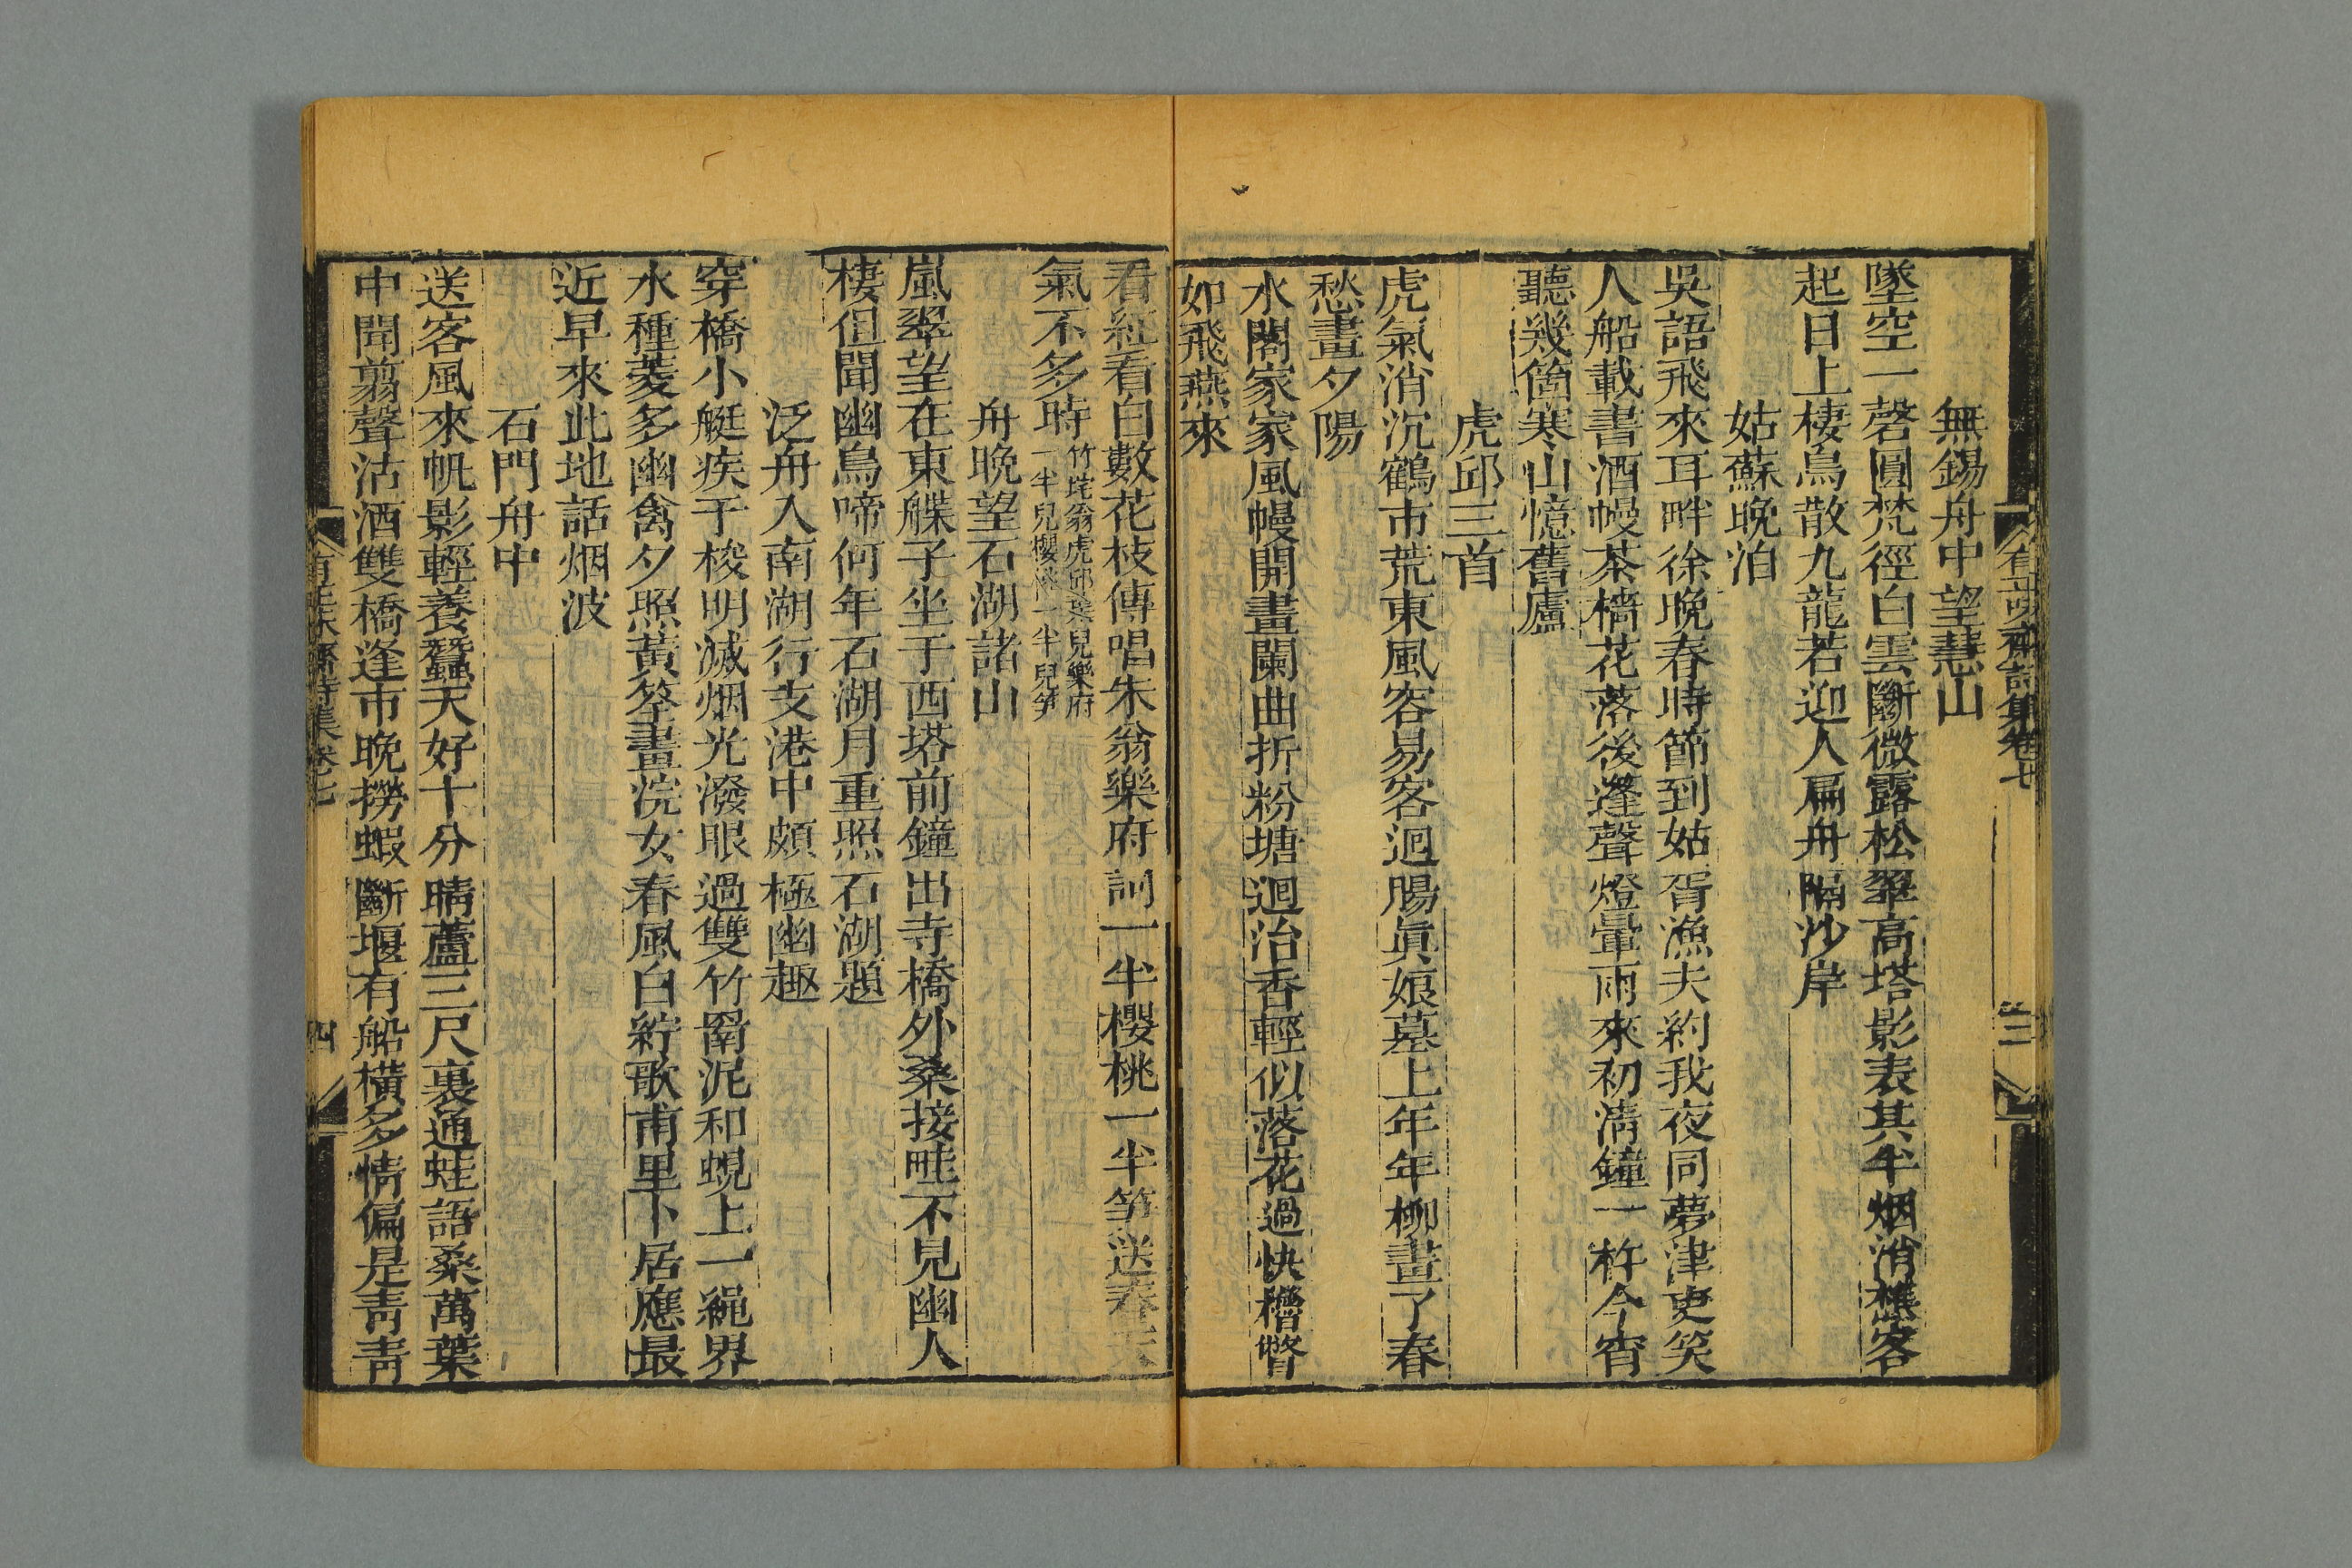 有正味齋詩集卷七
三
無錫舟中望慧山
墜空一磬圓梵徑白雲斷微露松翠高塔影表其半烟消樵客
起日上棲烏散九龍若迎人扁舟隔沙岸
姑蘇晚泊
吳語飛來耳畔徐晚春時節到姑胥漁夫約我夜同夢津吏笑
人船載書酒幔茶檣花落後蓬聲燈暈雨來初淸鐘一杵今宵
聽幾箇寒山憶舊廬
虎邱三首
虎氣消沉鶴市荒東風容易客迴腸眞娘墓上年年柳畫了春
愁畫夕陽
水閣家家風幔開畫闌曲折粉塘迴冶香輕似落花過快櫓瞥
如飛燕來
看紅看白數花枝傳唱朱翁樂府詞一半櫻桃一半笋送春天
氣不多時竹垞翁虎邱葉兒樂府
一半兒櫻桃一半兒笋
舟晚望石湖諸山
嵐翠望在東艓子坐于西塔前鐘出寺橋外桑接畦不見幽人
棲但聞幽鳥啼何年石湖月重照石湖題
泛舟入南湖行支港中頗極幽趣
穿橋小艇疾于梭明滅烟光潑眼過雙竹罱泥和蜆上一繩界
水種菱多幽禽夕照黃筌畫浣女春風白紵歌甫里卜居應最
近早來此地話烟波
石門舟中
送客風來帆影輕養蠶天好十分晴蘆三尺裏通蛙語桑萬葉
中聞翦聲沽酒雙橋逢市晚撈蝦斷堰有船橫多情偏是靑靑
有正味齋詩集卷七
四